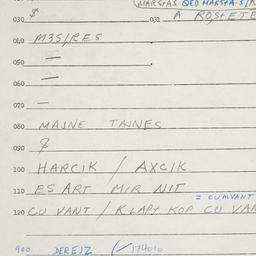 MARSTAS QED MARSTA-S/
030 $ 031 A ROSTETE
040 M3S/RES
050 —
060 —
070 —
080 MAJNE TAJNES
090 $
100 HARCIK / AXCIK
110 ES ART / MIR NIT
= CUMVANT
120 CU VANT / KLAPT KOP CU VAN
900 DEREJZ (✓174010